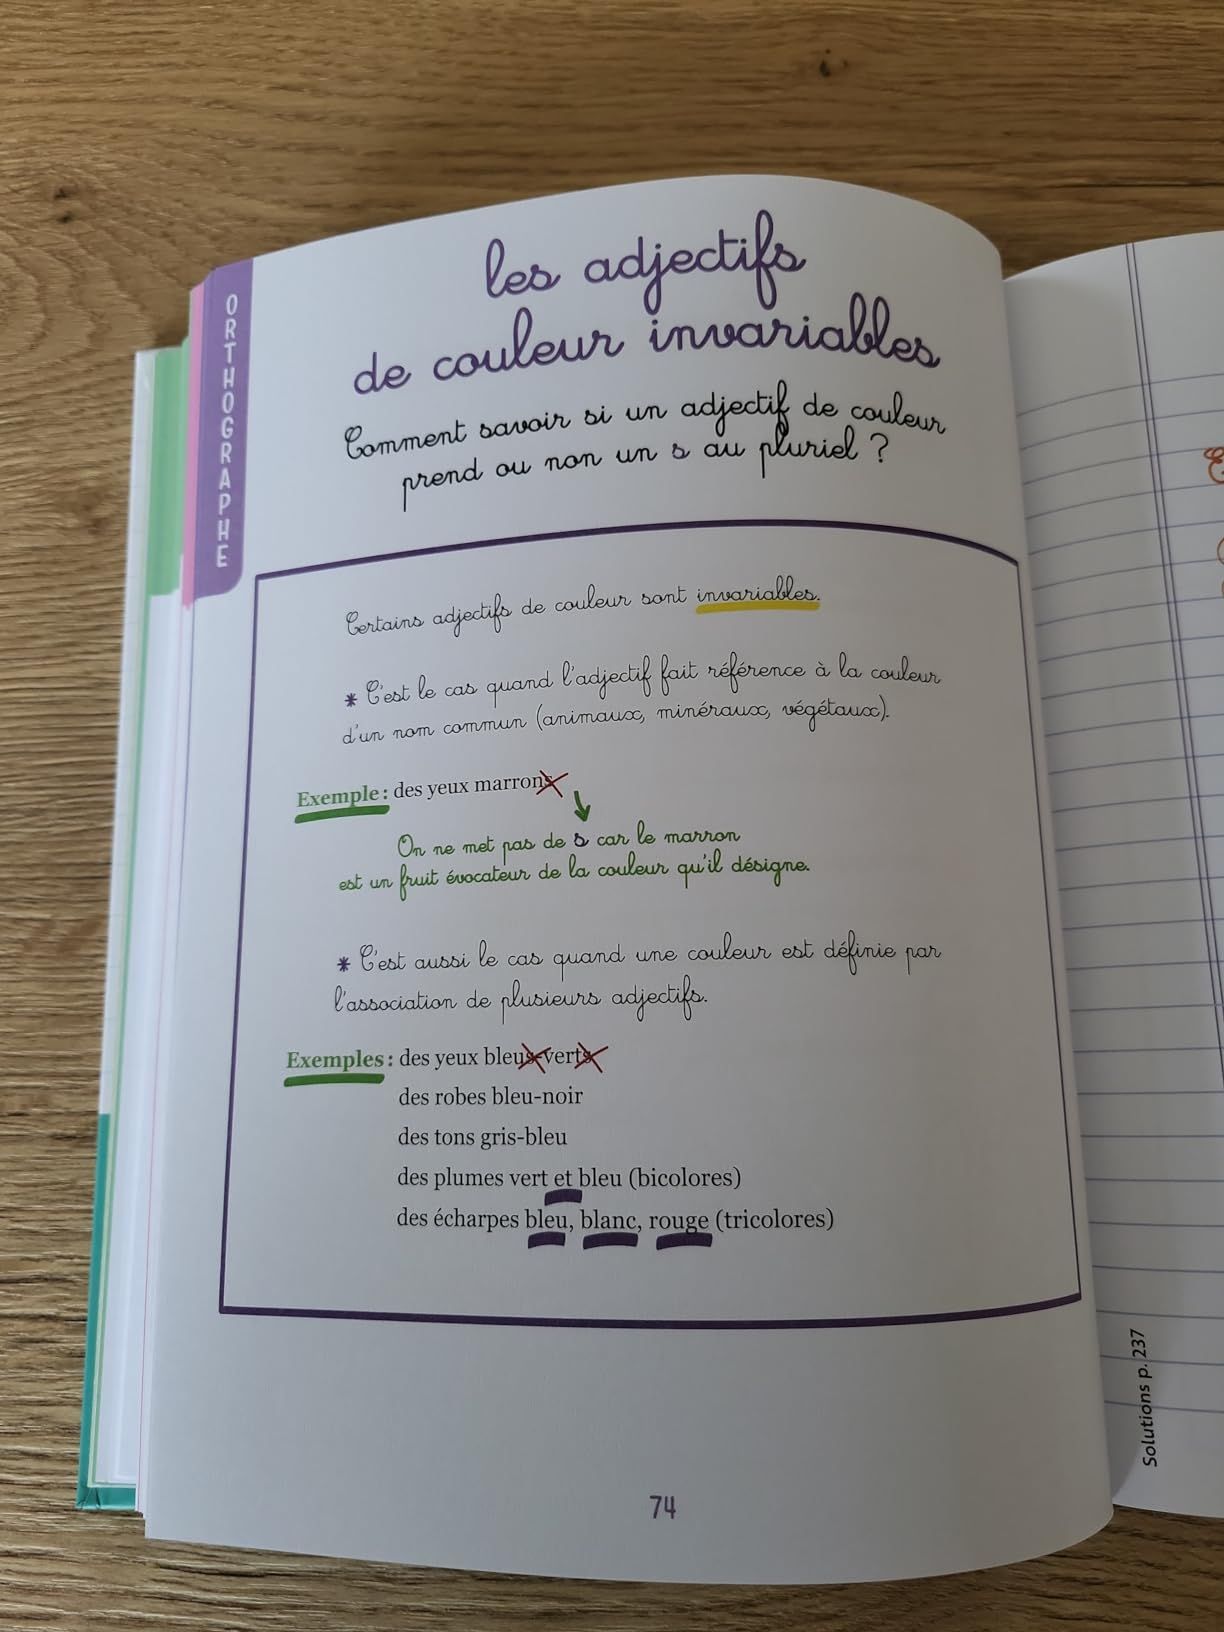 ORTHOGRAPHE
les adjectifs
de couleur invariables
Comment savoir si un adjectif de couleur
prend ou non un s au pluriel ?
Certains adjectifs de couleur sont invariables.
* C'est le cas quand l'adjectif fait référence à la couleur
d'un nom commun (animaux, minéraux, végétaux).
Exemple : des yeux marrons
On ne met pas de s car le marron
est un fruit évocateur de la couleur qu'il désigne.
* C'est aussi le cas quand une couleur est définie par
l'association de plusieurs adjectifs.
Exemples : des yeux bleus-verts
des robes bleu-noir
des tons gris-bleu
des plumes vert et bleu (bicolores)
des écharpes bleu, blanc, rouge (tricolores)
74
Solutions p. 237